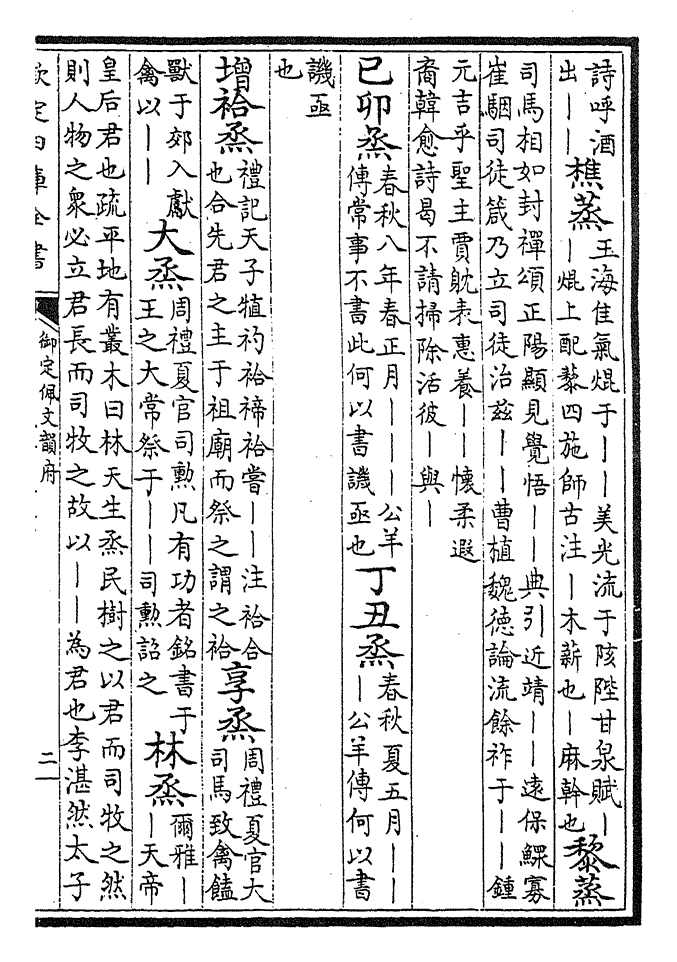 詩呼酒
出——
樵蒸
玉海佳氣焜于——美光流于陔陛甘泉賦—
—焜上配藜四施師古注—木薪也—麻幹也
黎蒸
司馬相如封禪頌正陽顯見覺悟——典引近靖——遠保鰥寡
崔駰司徒箴乃立司徒治兹——曹植魏德論流餘祚于——鍾
元吉乎聖主賈躭表惠養——懷柔遐
裔韓愈詩曷不請掃除活彼—與—
已卯烝
春秋八年春正月———公羊
傳常事不書此何以書譏亟也
丁丑烝
春秋夏五月——
—公羊傳何以書
譏亟
也
增祫烝
禮記天子犆礿祫禘祫嘗——注祫合
也合先君之主于祖廟而祭之謂之祫
享烝
周禮夏官大
司馬致禽饁
獸于郊入獻
禽以——
大烝
周禮夏官司勲凡有功者銘書于
王之大常祭于——司勲詔之
林烝
爾雅—
—天帝
皇后君也疏平地有叢木曰林天生烝民樹之以君而司牧之然
則人物之衆必立君長而司牧之故以——為君也李湛然太子
欽定四庫全書
御定佩文韻府